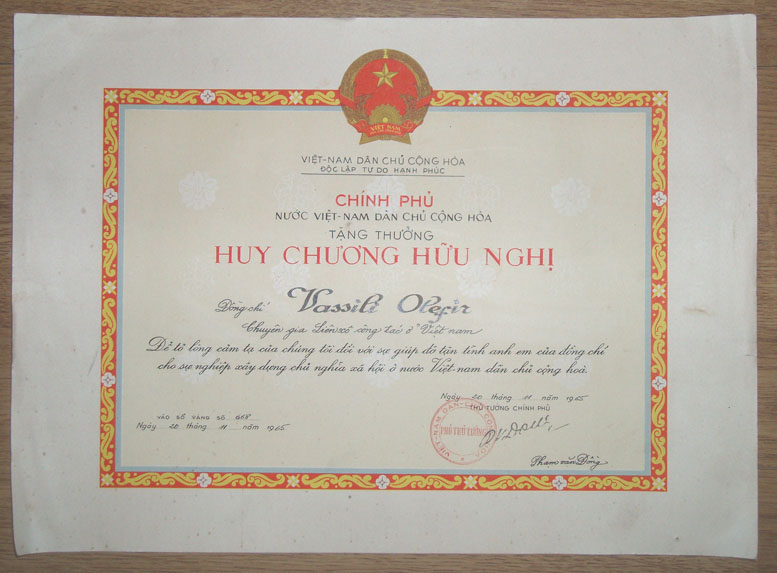 VIỆT NAM
VIỆT-NAM DÂN CHỦ CỘNG HÒA
ĐỘC LẬP TỰ DO HẠNH PHÚC
CHÍNH PHỦ
NƯỚC VIỆT-NAM DÂN CHỦ CỘNG HÒA
TẶNG THƯỞNG
HUY CHƯƠNG HỮU NGHỊ
Đồng chí Vassili Olefir
Chuyên gia Liên xô công tác ở Việt nam
Để tỏ lòng cảm tạ của chúng tôi đối với sự giúp đỡ tận tình anh em của đồng chí
cho sự nghiệp xây dựng chủ nghĩa xã hội ở nước Việt-nam dân chủ cộng hoà.
Ngày 20 tháng 11 năm 1965
THỦ TƯỚNG CHÍNH PHỦ
VÀO SỔ VÀNG SỐ 668
Ngày 20 tháng 11 năm 1965
VIỆT-NAM DÂN CHỦ CỘNG HÒA
PHỦ THỦ TƯỚNG
Phạm văn Đồng